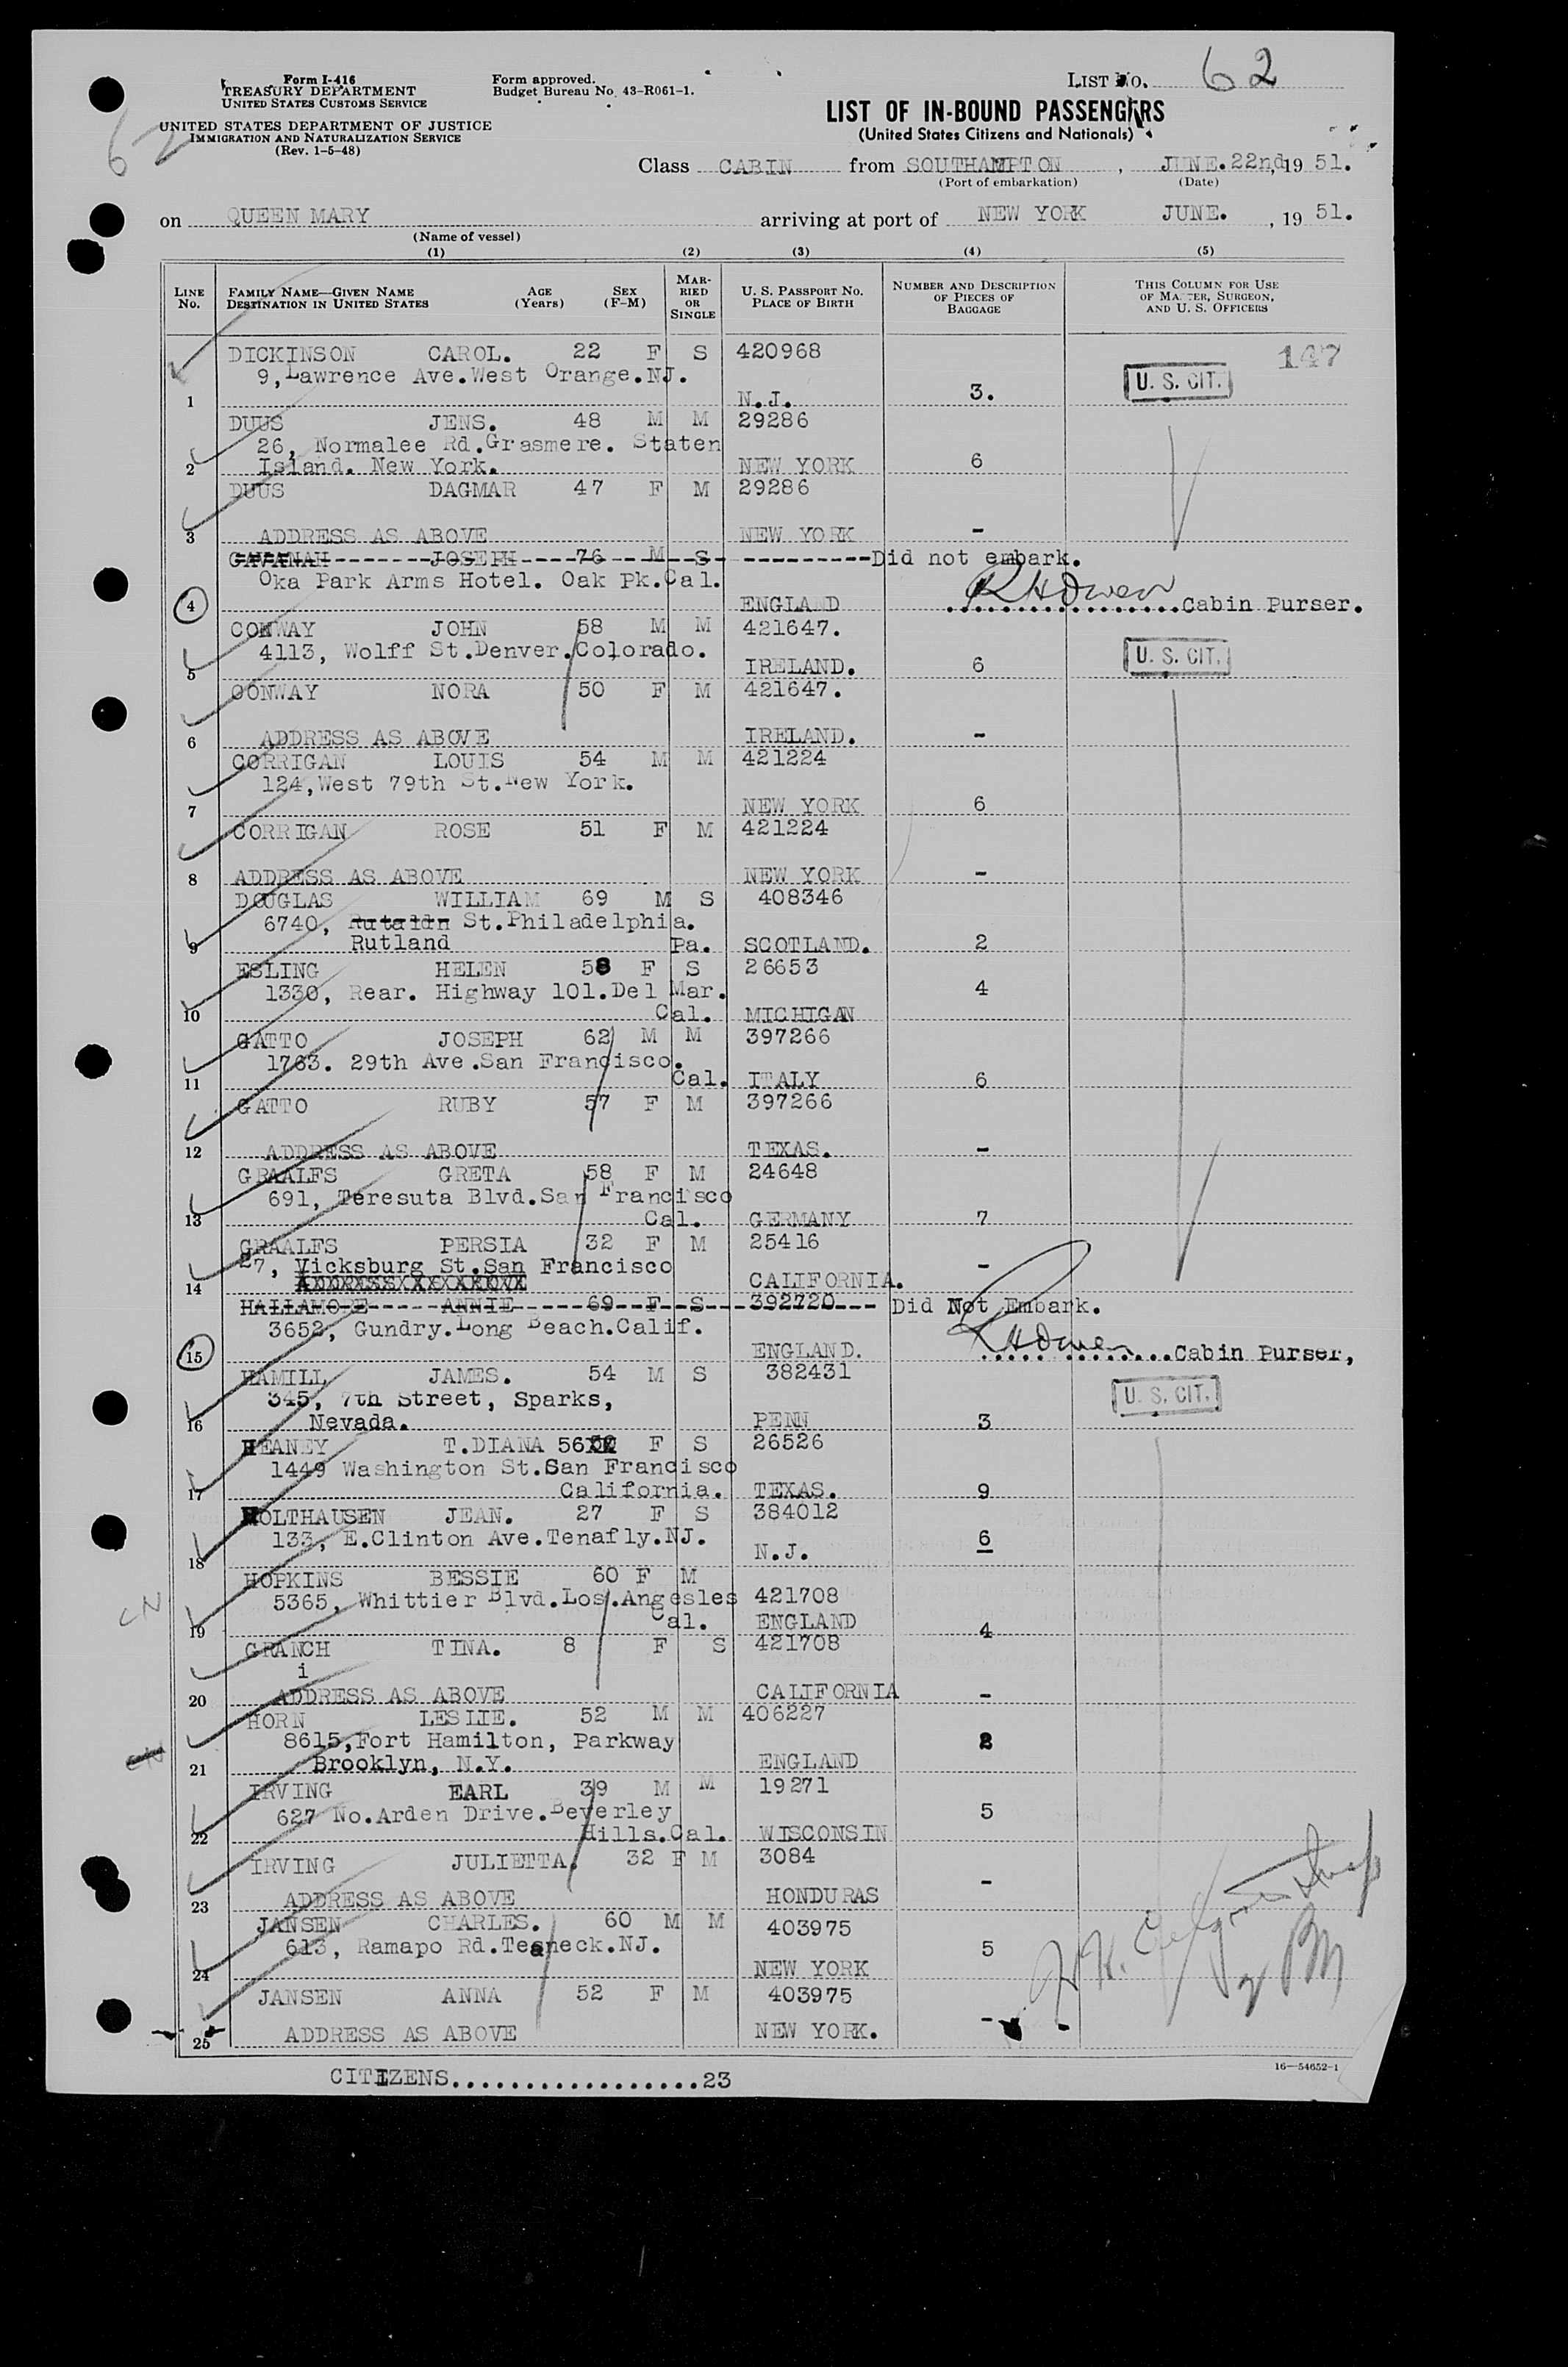 Form I-416
TREASURY DEPARTMENT
UNITED STATES CUSTOMS SERVICE
UNITED STATES DEPARTMENT OF JUSTICE
IMMIGRATION AND NATURALIZATION SERVICE
(Rev. 1-5-48)
Form approved.
Budget Bureau No. 43-R061-1.
62
LIST NO. 62
LIST OF IN-BOUND PASSENGERS
(United States Citizens and Nationals)
Class CABIN from SOUTHAMPTON, JUNE. 22nd, 19 51.
(Port of embarkation) (Date)
on QUEEN MARY arriving at port of NEW YORK JUNE. , 19 51.
(Name of vessel)
(1) (2) (3) (4) (5)
LINE No. FAMILY NAME—GIVEN NAME DESTINATION IN UNITED STATES AGE (Years) SEX (F-M) MARRIED OR SINGLE U. S. PASSPORT NO. PLACE OF BIRTH NUMBER AND DESCRIPTION OF PIECES OF BAGGAGE THIS COLUMN FOR USE OF MASTER, SURGEON, AND U. S. OFFICERS
147
DICKINSON CAROL. 22 F S 420968
9, Lawrence Ave.West Orange.NJ. U. S. CIT.
1 N.J. 3.
DUUS JENS. 48 M M 29286
26, Normalee Rd.Grasmere. Staten
2 Island. New York. NEW YORK 6
DUUS DAGMAR 47 F M 29286
3 ADDRESS AS ABOVE NEW YORK -
CAVANAH JOSEPH 76 M S Did not embark.
Oka Park Arms Hotel. Oak Pk.Cal.
4 ENGLAND RHOwen Cabin Purser.
CONWAY JOHN 58 M M 421647.
4113, Wolff St.Denver.Colorado. U. S. CIT.
5 IRELAND. 6
CONWAY NORA 50 F M 421647.
6 ADDRESS AS ABOVE IRELAND. -
CORRIGAN LOUIS 54 M M 421224
124,West 79th St.New York.
7 NEW YORK 6
CORRIGAN ROSE 51 F M 421224
8 ADDRESS AS ABOVE NEW YORK -
DOUGLAS WILLIAM 69 M S 408346
6740, Rutaldn St.Philadelphia.
9 Rutland Pa. SCOTLAND. 2
ESLING HELEN 58 F S 26653
1330, Rear. Highway 101.Del Mar. 4
10 Cal. MICHIGAN
GATTO JOSEPH 62 M M 397266
1763. 29th Ave.San Francisco.
11 Cal. ITALY 6
GATTO RUBY 57 F M 397266
12 ADDRESS AS ABOVE TEXAS. -
GRAALFS GRETA 58 F M 24648
691, Teresuta Blvd.San Francisco
13 Cal. GERMANY 7
GRAALFS PERSIA 32 F M 25416
27, Vicksburg St.San Francisco -
14 CALIFORNIA.
HALLAMORE ANNIE 69 F S 392720 Did Not Embark.
3652, Gundry.Long Beach.Calif.
15 ENGLAND. RHOwen Cabin Purser,
HAMILL JAMES. 54 M S 382431
345, 7th Street, Sparks, U. S. CIT.
16 Nevada. PENN 3
HEANEY T.DIANA 56 F S 26526
1449 Washington St.San Francisco
17 California. TEXAS. 9
HOLTHAUSEN JEAN. 27 F S 384012
133, E.Clinton Ave.Tenafly.NJ. 6
18 N.J.
HOPKINS BESSIE 60 F M
CN 5365, Whittier Blvd.Los.Angesles 421708
19 Cal. ENGLAND 4
GRANCH TINA. 8 F S 421708
i
20 ADDRESS AS ABOVE CALIFORNIA -
HORN LESLIE. 52 M M 406227
8615,Fort Hamilton, Parkway 2
21 Brooklyn, N.Y. ENGLAND
IRVING EARL 39 M M 19271
627 No.Arden Drive.Beverley 5
22 Hills.Cal. WISCONSIN
IRVING JULIETTA. 32 F M 3084
23 ADDRESS AS ABOVE HONDURAS -
JANSEN CHARLES. 60 M M 403975
613, Ramapo Rd.Teaneck.NJ. 5
24 NEW YORK
JANSEN ANNA 52 F M 403975
25 ADDRESS AS ABOVE NEW YORK. -
CITIZENS..................23
16—54652-1